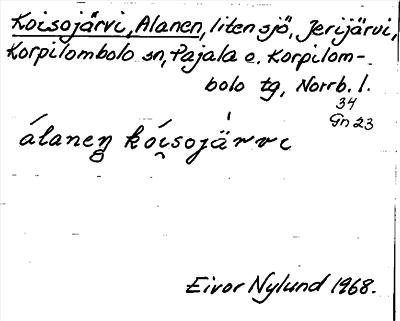 Koisojärvi, Alanen, liten sjö, Jerijärvi,
Korpilombolo sn, Pajala o. Korpilom-
bolo tg, Norrb. l.
34
Gn 23
álanen kóisojärvi
Eivor Nylund 1968.